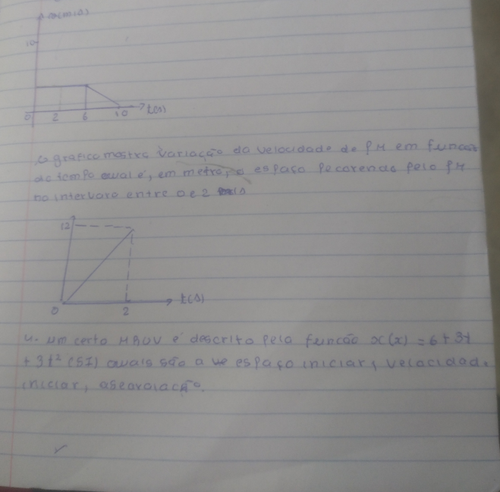 10
0 2 6 10 t(s)
o grafico mostra variação da velocidade do PM em função
do tempo qual é, em metro, o espaço pecorendo pelo PM
no intervaro entre 0 e 2
12
0 2 t(s)
4. um certo MRUV é descrita pela funcão x(x) = 6 + 3t
+ 3t² (SI) quais são a espaço iniciar, velocidad.
iniciar,